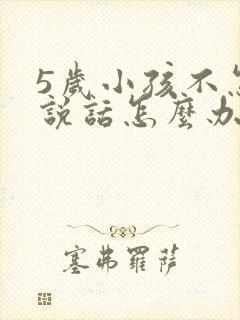 5歲小孩不怎
說話怎麼办
塞弗羅薩